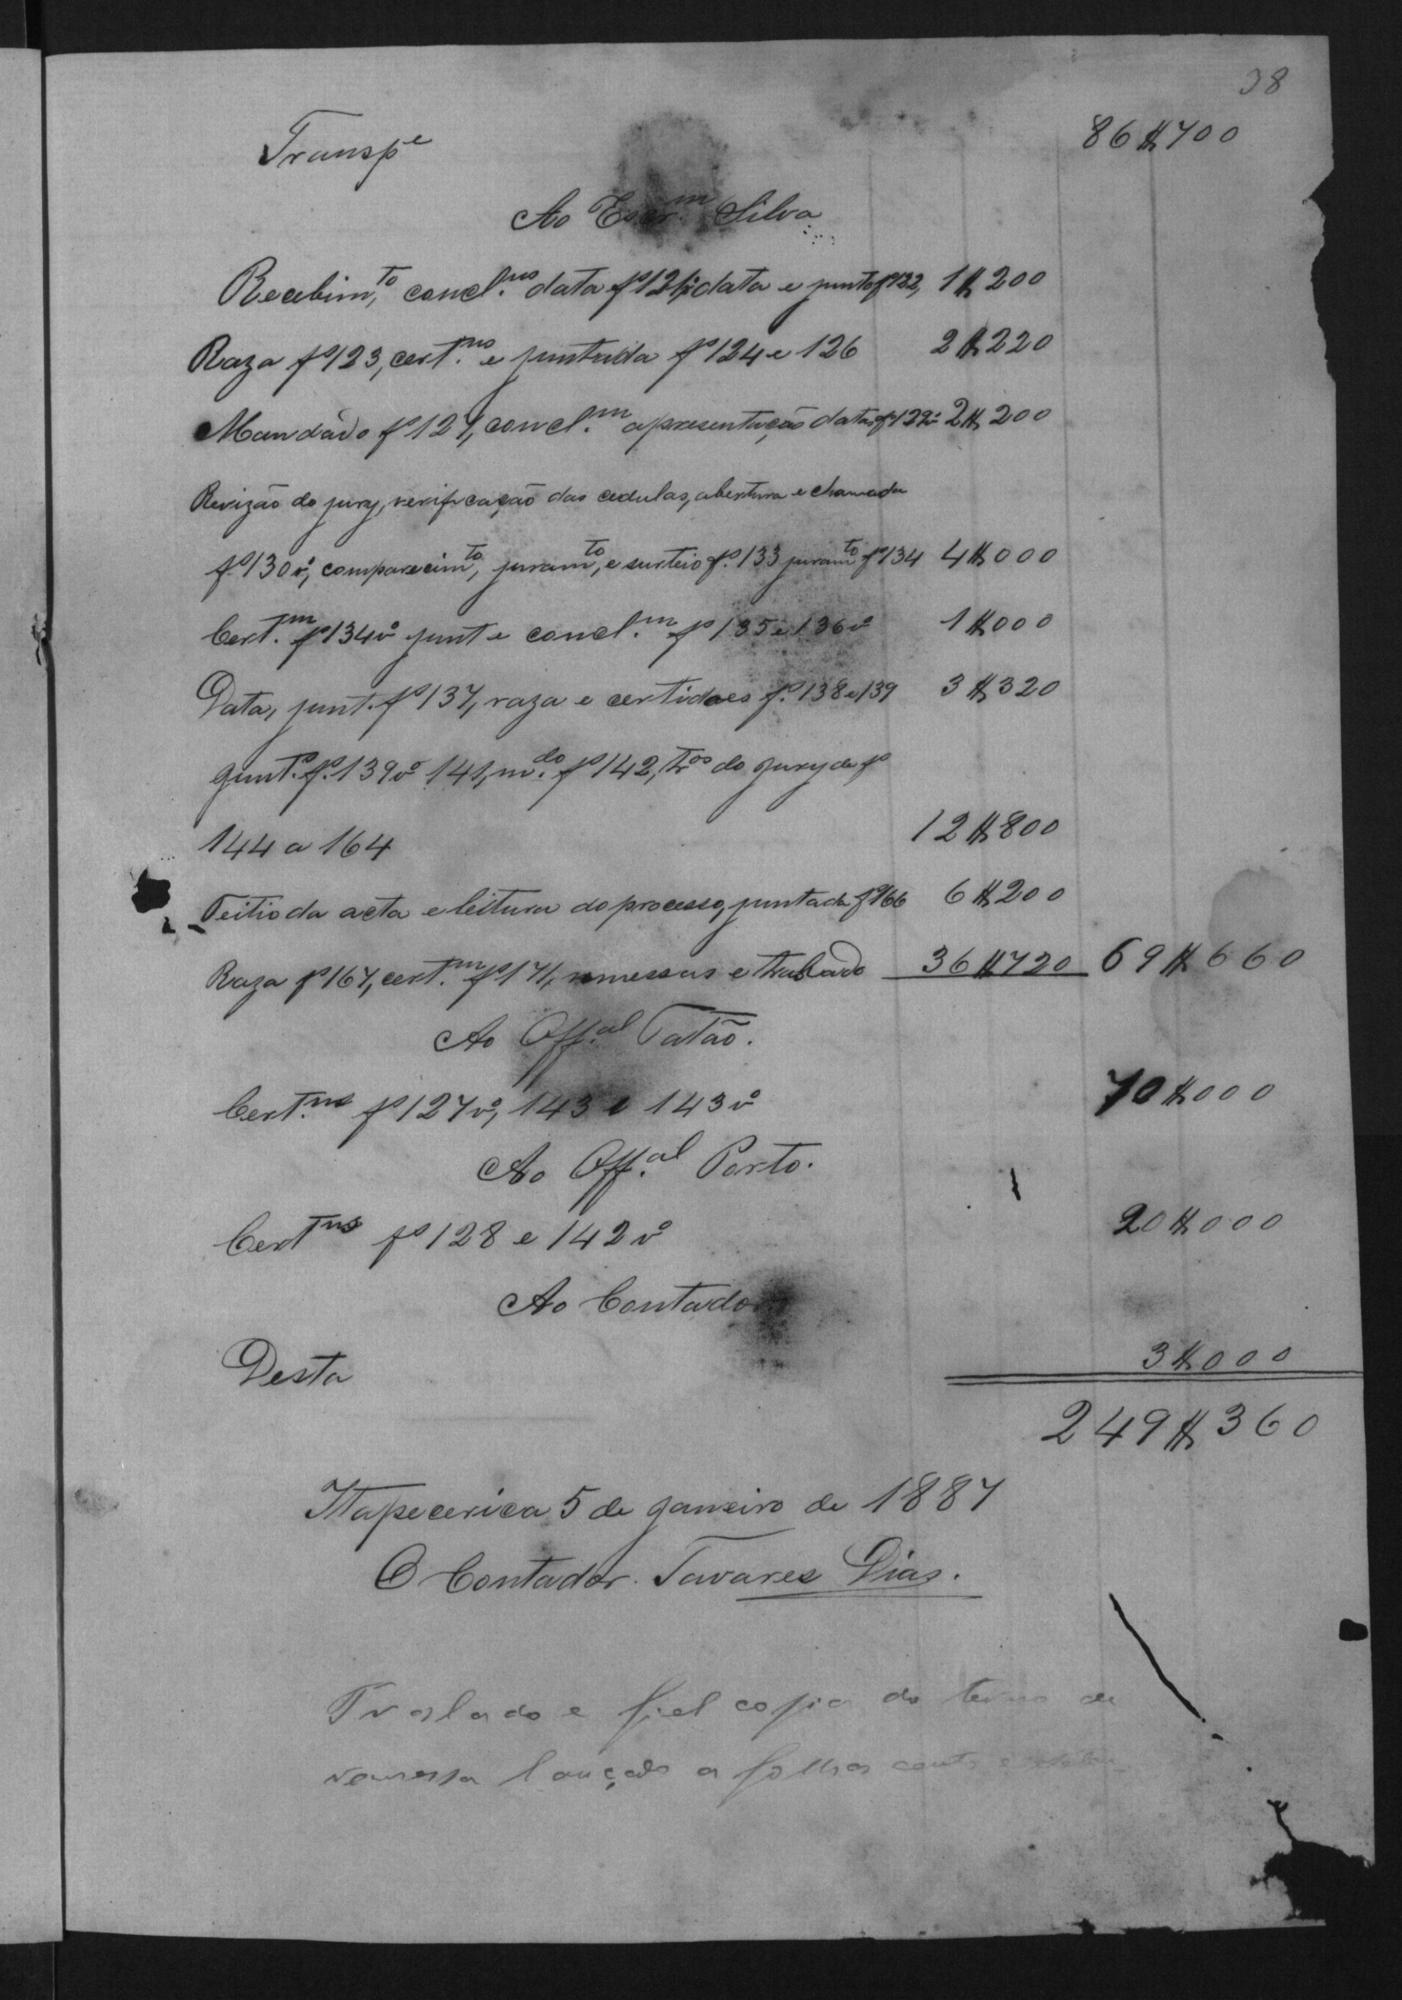 38
Transpe 86$700
Ao Escrm Silva
Recebimto, conclms data fo 121 data e junto fo 122, 1$200
Raza fo 123, certms e juntada fo 124 e 126 2$220
Mandado fo 127, conclm apresentação data fo 129vo 2$200
Revizão do jury, verificação das cedulas, abertura e chamada
fo 130vo, comparecimto, juramto, e surteio fo 133 juramto fo 134 4$000
Certm fo 134vo junt e conclm fo 135 e 136vo 1$000
Data, junt. fo 137, raza e certidões fo 138 e 139 3$320
Junt. fo 139vo 141, mdo fo 142, tros do jury de fo
144 a 164 12$800
Feitio da acta e leitura do processo, juntada fo 166 6$200
Raza fo 167, certm fo 171, remessas e traslado 36$720 69$660
Ao Offal Tatão.
Certms fo 127vo, 143 e 143vo 70$000
Ao Offal Porto.
Certms fo 128 e 142vo 20$000
Ao Contador
Desta 3$000
249$360
Itapecerica 5 de janeiro de 1887
O Contador. Tavares Dias.
Traslado e fiel copia do termo de
remessa lançado a folhas cento e